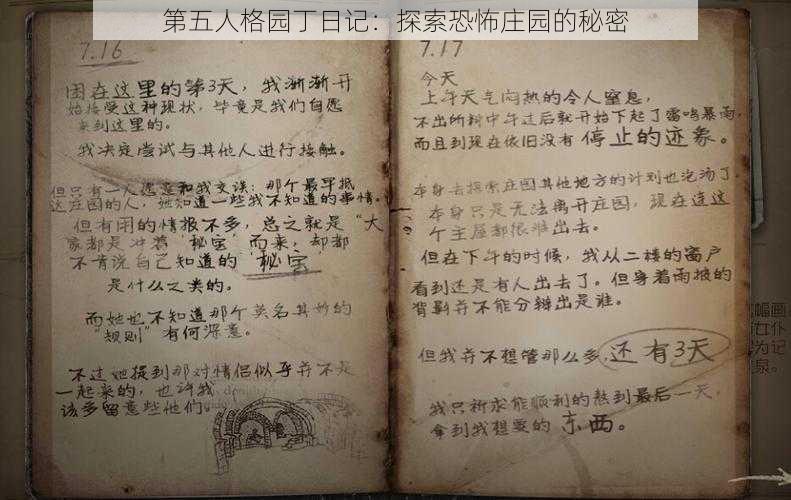 第五人格园丁日记：探索恐怖庄园的秘密
7.16
困在这里的第3天，我渐渐开
始接受这种现状，毕竟是我们自愿
来到这里的。
我决定尝试与其他人进行接触。
但只有一人愿意和我交谈：那个最早抵
达庄园的人，她知道一些我不知道的事情。
但有用的情报不多，总之就是“大
家都是冲着‘秘宝’而来，却都
不肯说自己知道的‘秘宝’
是什么之类的。
而她也不知道那个莫名其妙的
“规则”有何深意。
不过她提到那对情侣似乎并不是
一起来的，也许我
该多留意些他们
7.17
今天
上午天气闷热的令人窒息，
不出所料中午过后就开始下起了雷鸣暴雨，
而且到现在依旧没有停止的迹象。
本身去探索庄园其他地方的计划也泡汤了
本身只是无法离开庄园，现在连这
个主屋都很难出去。
但在下午的时候，我从二楼的窗户
看到还是有人出去了。但穿着雨披的
背影并不能分辨出是谁。
但我并不想管那么多，还有3天
我只祈求能顺利的熬到最后一天，
拿到我想要的东西。
幅画
女仆
为记
泉。